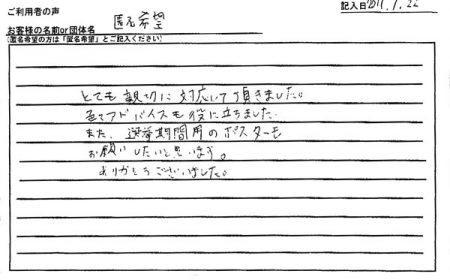 ご利用者の声
記入日2011.1.26
お客様の名前or団体名 匿名希望
(匿名希望の方は「匿名希望」とご記入ください)
とても親切に対応して頂きました。
アドバイスも役に立ちました。
また、選挙期間用のポスターも
お願いしたいと思います。
ありがとうございました。